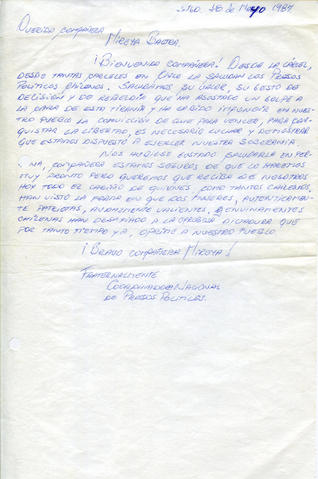 STGO. 20 de Mayo 1987
QUERIDA COMPAÑERA
MIREYA BALTRA.
¡BIENVENIDA COMPAÑERA! DESDE LA CÁRCEL,
DESDE TANTAS CÁRCELES EN CHILE LA SALUDAN LOS PRESOS
POLITICOS CHILENOS. SALUDAMOS SU VALOR, SU GESTO DE
DECISIÓN Y DE REBELDÍA QUE HA ASESTADO UN GOLPE A
LA CARA DE ESTA TIRANÍA Y HA DEBIDO IMPONERLE EN NUES-
TRO PUEBLO LA CONVICCIÓN DE QUE PARA VENCER, PARA CON-
QUISTAR LA LIBERTAD, ES NECESARIO LUCHAR Y DEMOSTRAR
QUE ESTAMOS DISPUESTO A EJERCER NUESTRA SOBERANÍA.
NOS HUBIESE GUSTADO SALUDARLA EN PERSO-
NA, COMPAÑERA ESTAMOS SEGUROS DE QUE LO HAREMOS
MUY PRONTO PERO QUEREMOS QUE RECIBA DE NOSOTROS
HOY TODO EL CARIÑO DE QUIENES, COMO TANTOS CHILENOS,
HAN VISTO LA FORMA EN QUE DOS MUJERES, AUTENTICAMEN-
TE PATRIOTAS, AUDAZMENTE VALIENTES, GENUINAMENTES
CHILENAS HAN DESAFIADO A LA OPROBIOSA DICTADURA QUE
POR TANTO TIEMPO YA, OPRIME A NUESTRO PUEBLO
¡BRAVO COMPAÑERA MIREYA!
FRATERNALMENTE
COORDINADORA NACIONAL
DE PRESOS POLITICOS.